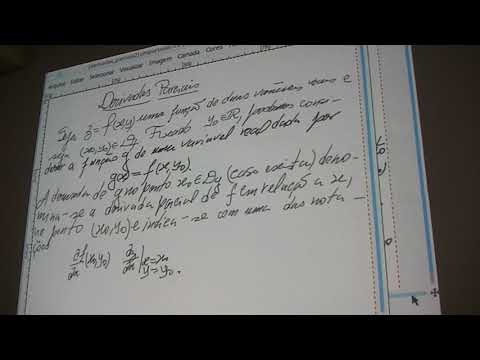 Arquivo Editar Selecionar Visualizar Imagem Camada Cores
Derivadas Parciais
Seja z = f(x,y) uma função de duas variáveis reais e
seja (x0,y0) ∈ Df. Fixado y0 ∈ R, podemos consi-
derar a função g de uma variável real dada por
g(x) = f(x,y0).
A derivada de g no ponto x0 ∈ Dg (caso exista) deno-
mina-se a derivada parcial de f em relação a x,
no ponto (x0,y0) e indica-se com uma das nota-
ções
∂f/∂x (x0,y0) ∂z/∂x | x=x0 y=y0 .